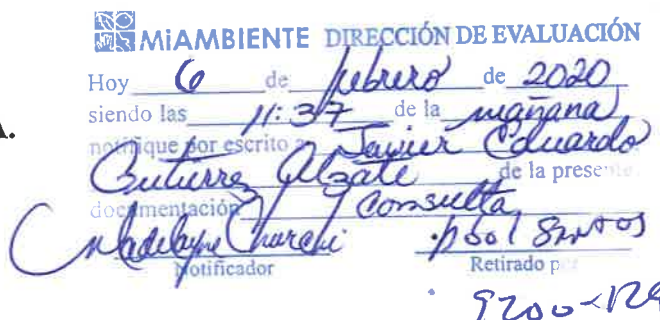 MiAMBIENTE DIRECCIÓN DE EVALUACIÓN
Hoy 6 de febrero de 2020
siendo las 11:37 de la mañana
A.
notifique por escrito a Javier Eduardo
Gutierrez Alzate de la presente
documentación Consulta
Notificador Retirado por